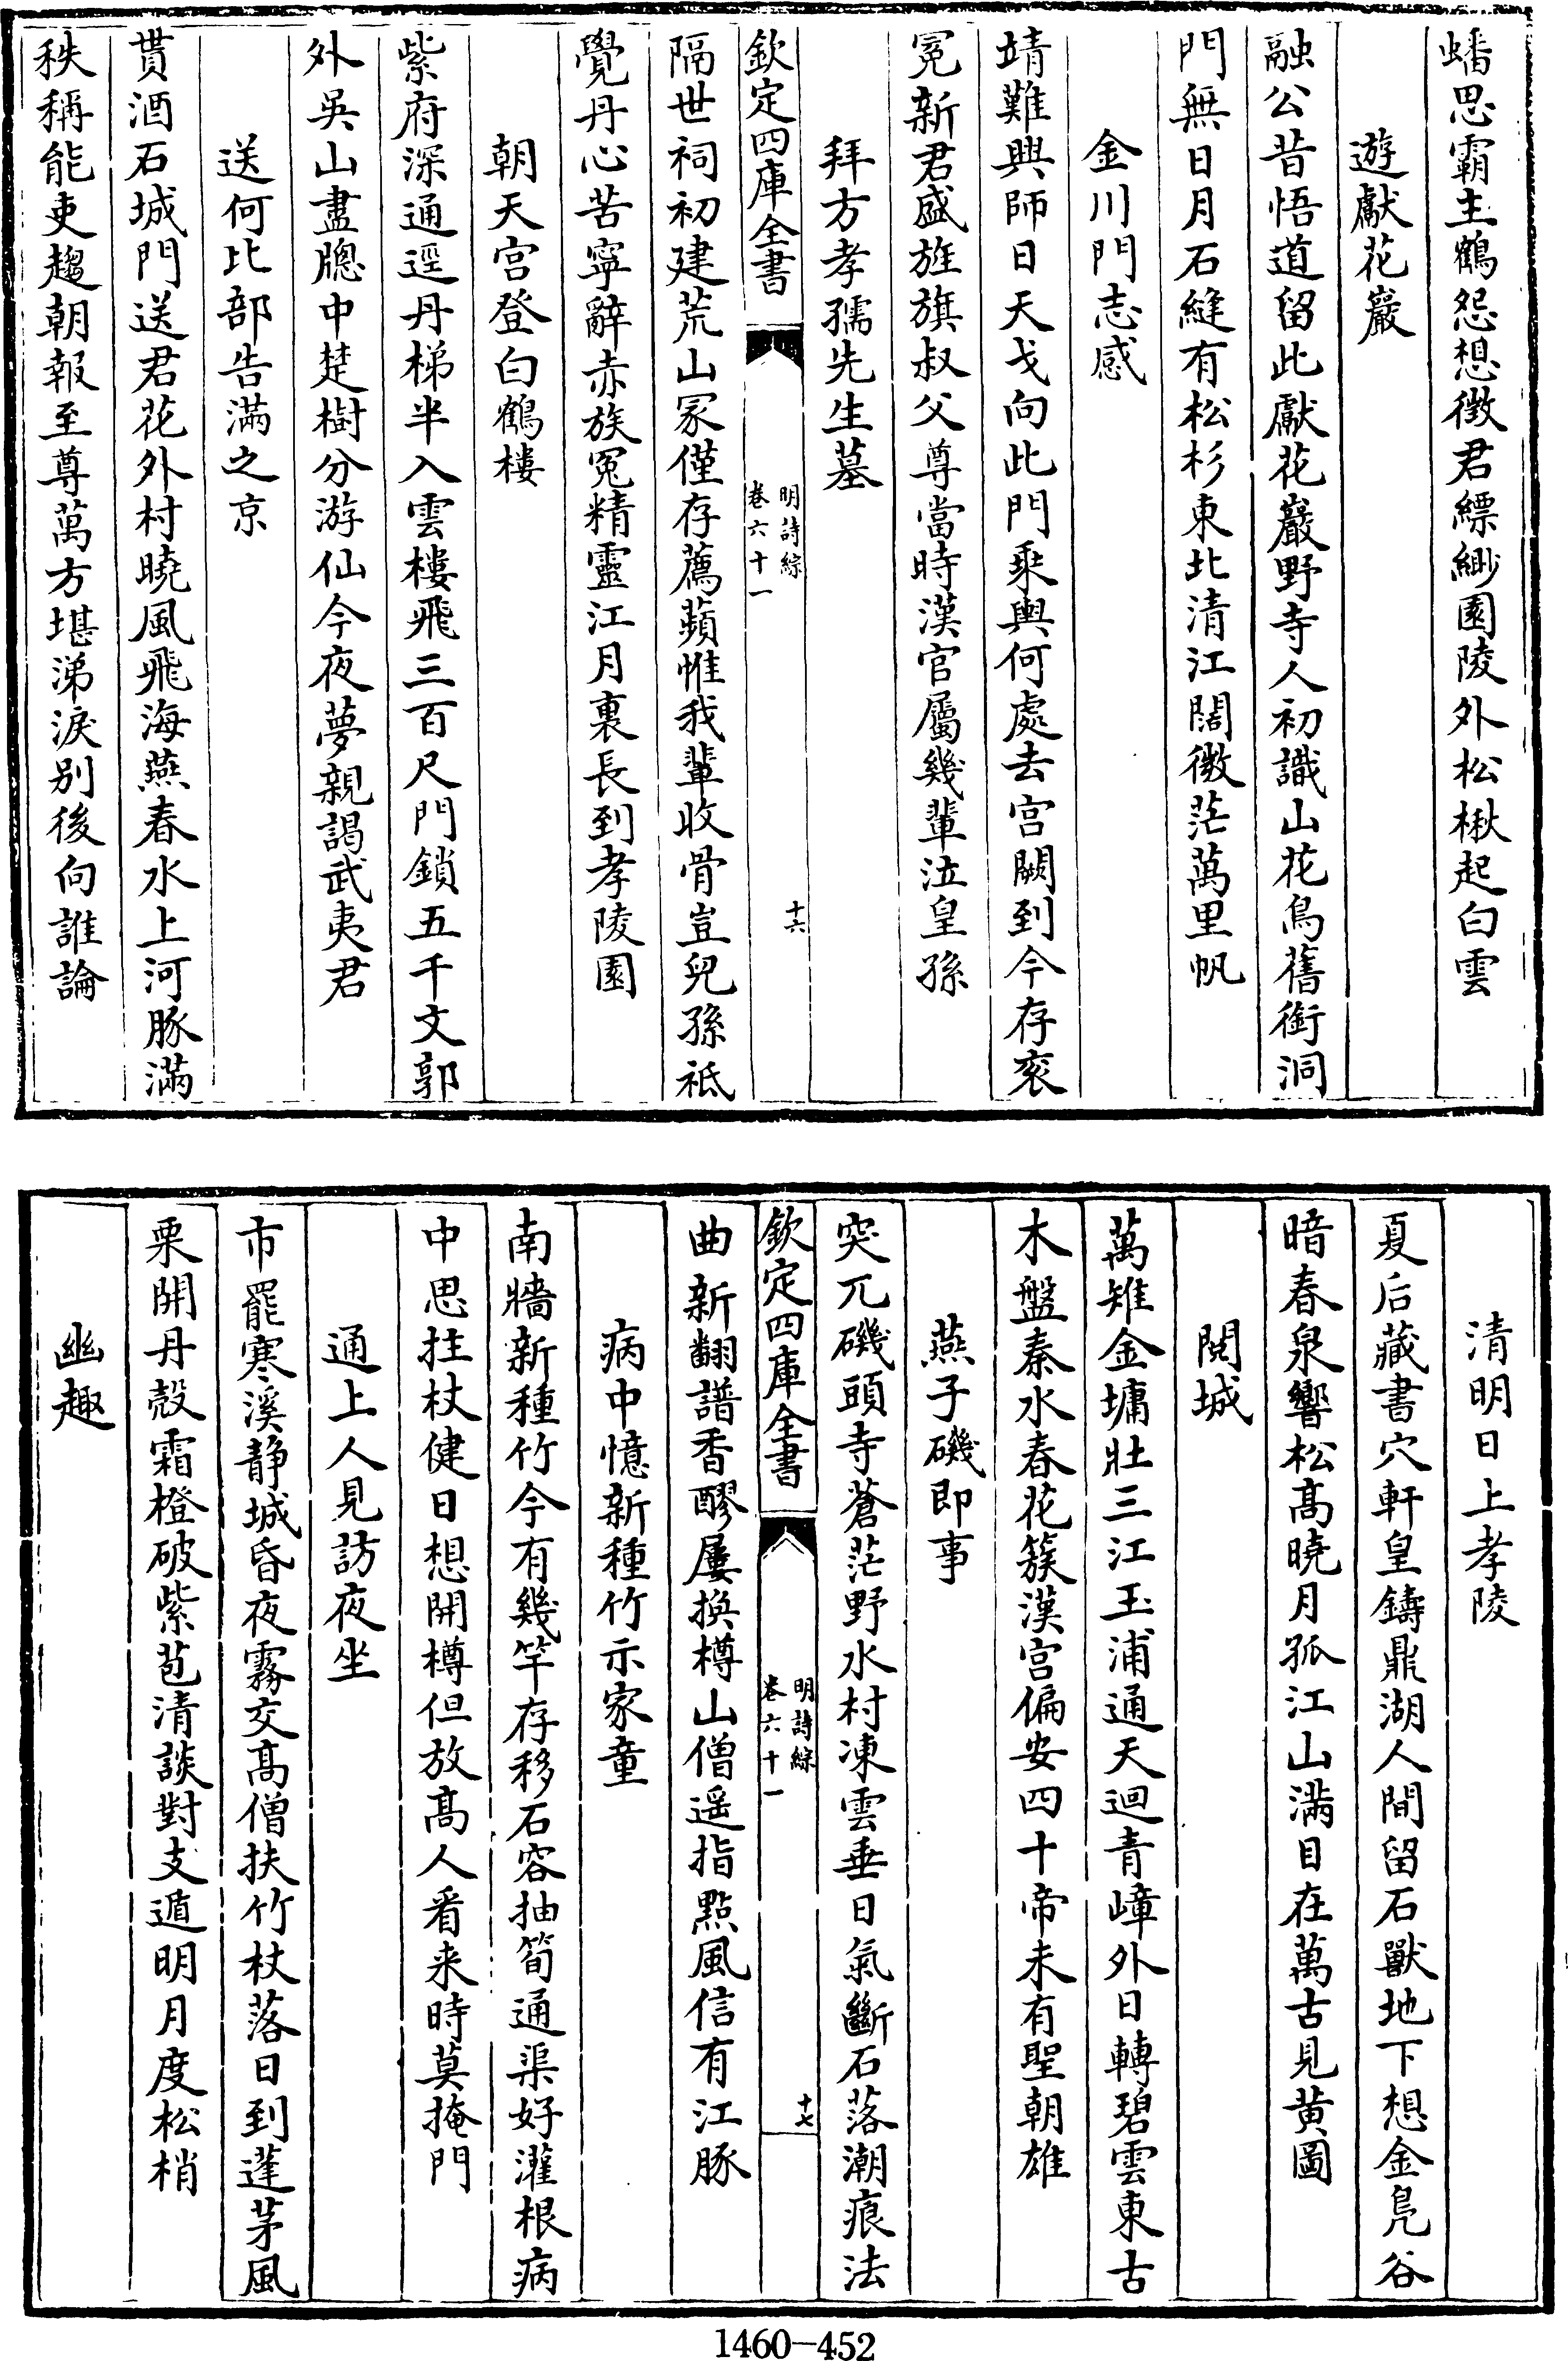 蟠思霸主鶴怨想徴君縹緲園陵外松楸起白雲
遊獻花巖
融公昔悟道留此獻花巖野寺人初識山花鳥舊銜洞
門無日月石縫有松杉東北清江闊微茫萬里帆
金川門志感
靖難興師日天戈向此門乘輿何處去宫闕到今存衮
冕新君盛旌旗叔父尊當時漢官屬幾輩泣皇孫
拜方孝孺先生墓
欽定四庫全書
明詩綜
卷六十一
十六
隔世祠初建荒山冢僅存薦蘋惟我輩收骨豈兒孫祗
覺丹心苦寧辭赤族冤精靈江月裏長到孝陵園
朝天宫登白鶴樓
紫府深通逕丹梯半入雲樓飛三百尺門鎖五千文郭
外吳山盡牕中楚樹分游仙今夜夢親謁武夷君
送何比部告滿之京
貰酒石城門送君花外村曉風飛海燕春水上河豚滿
秩稱能吏趨朝報至尊萬方堪涕淚别後向誰論
清明日上孝陵
夏后藏書穴軒皇鑄鼎湖人間留石獸地下想金鳬谷
暗春泉響松髙曉月孤江山滿目在萬古見黄圖
閱城
萬雉金墉壯三江玉浦通天迴青嶂外日轉碧雲東古
木盤秦水春花簇漢宫偏安四十帝未有聖朝雄
燕子磯即事
突兀磯頭寺蒼茫野水村凍雲垂日氣斷石落潮痕法
欽定四庫全書
明詩綜
卷六十一
十七
曲新翻譜香醪屢換樽山僧遥指點風信有江豚
病中憶新種竹示家童
南牆新種竹今有幾竿存移石容抽筍通渠好灌根病
中思拄杖健日想開樽但放髙人看来時莫掩門
通上人見訪夜坐
市罷寒溪静城昏夜霧交髙僧扶竹杖落日到蓬茅風
栗開丹殼霜橙破紫苞清談對支遁明月度松梢
幽趣
1460-452